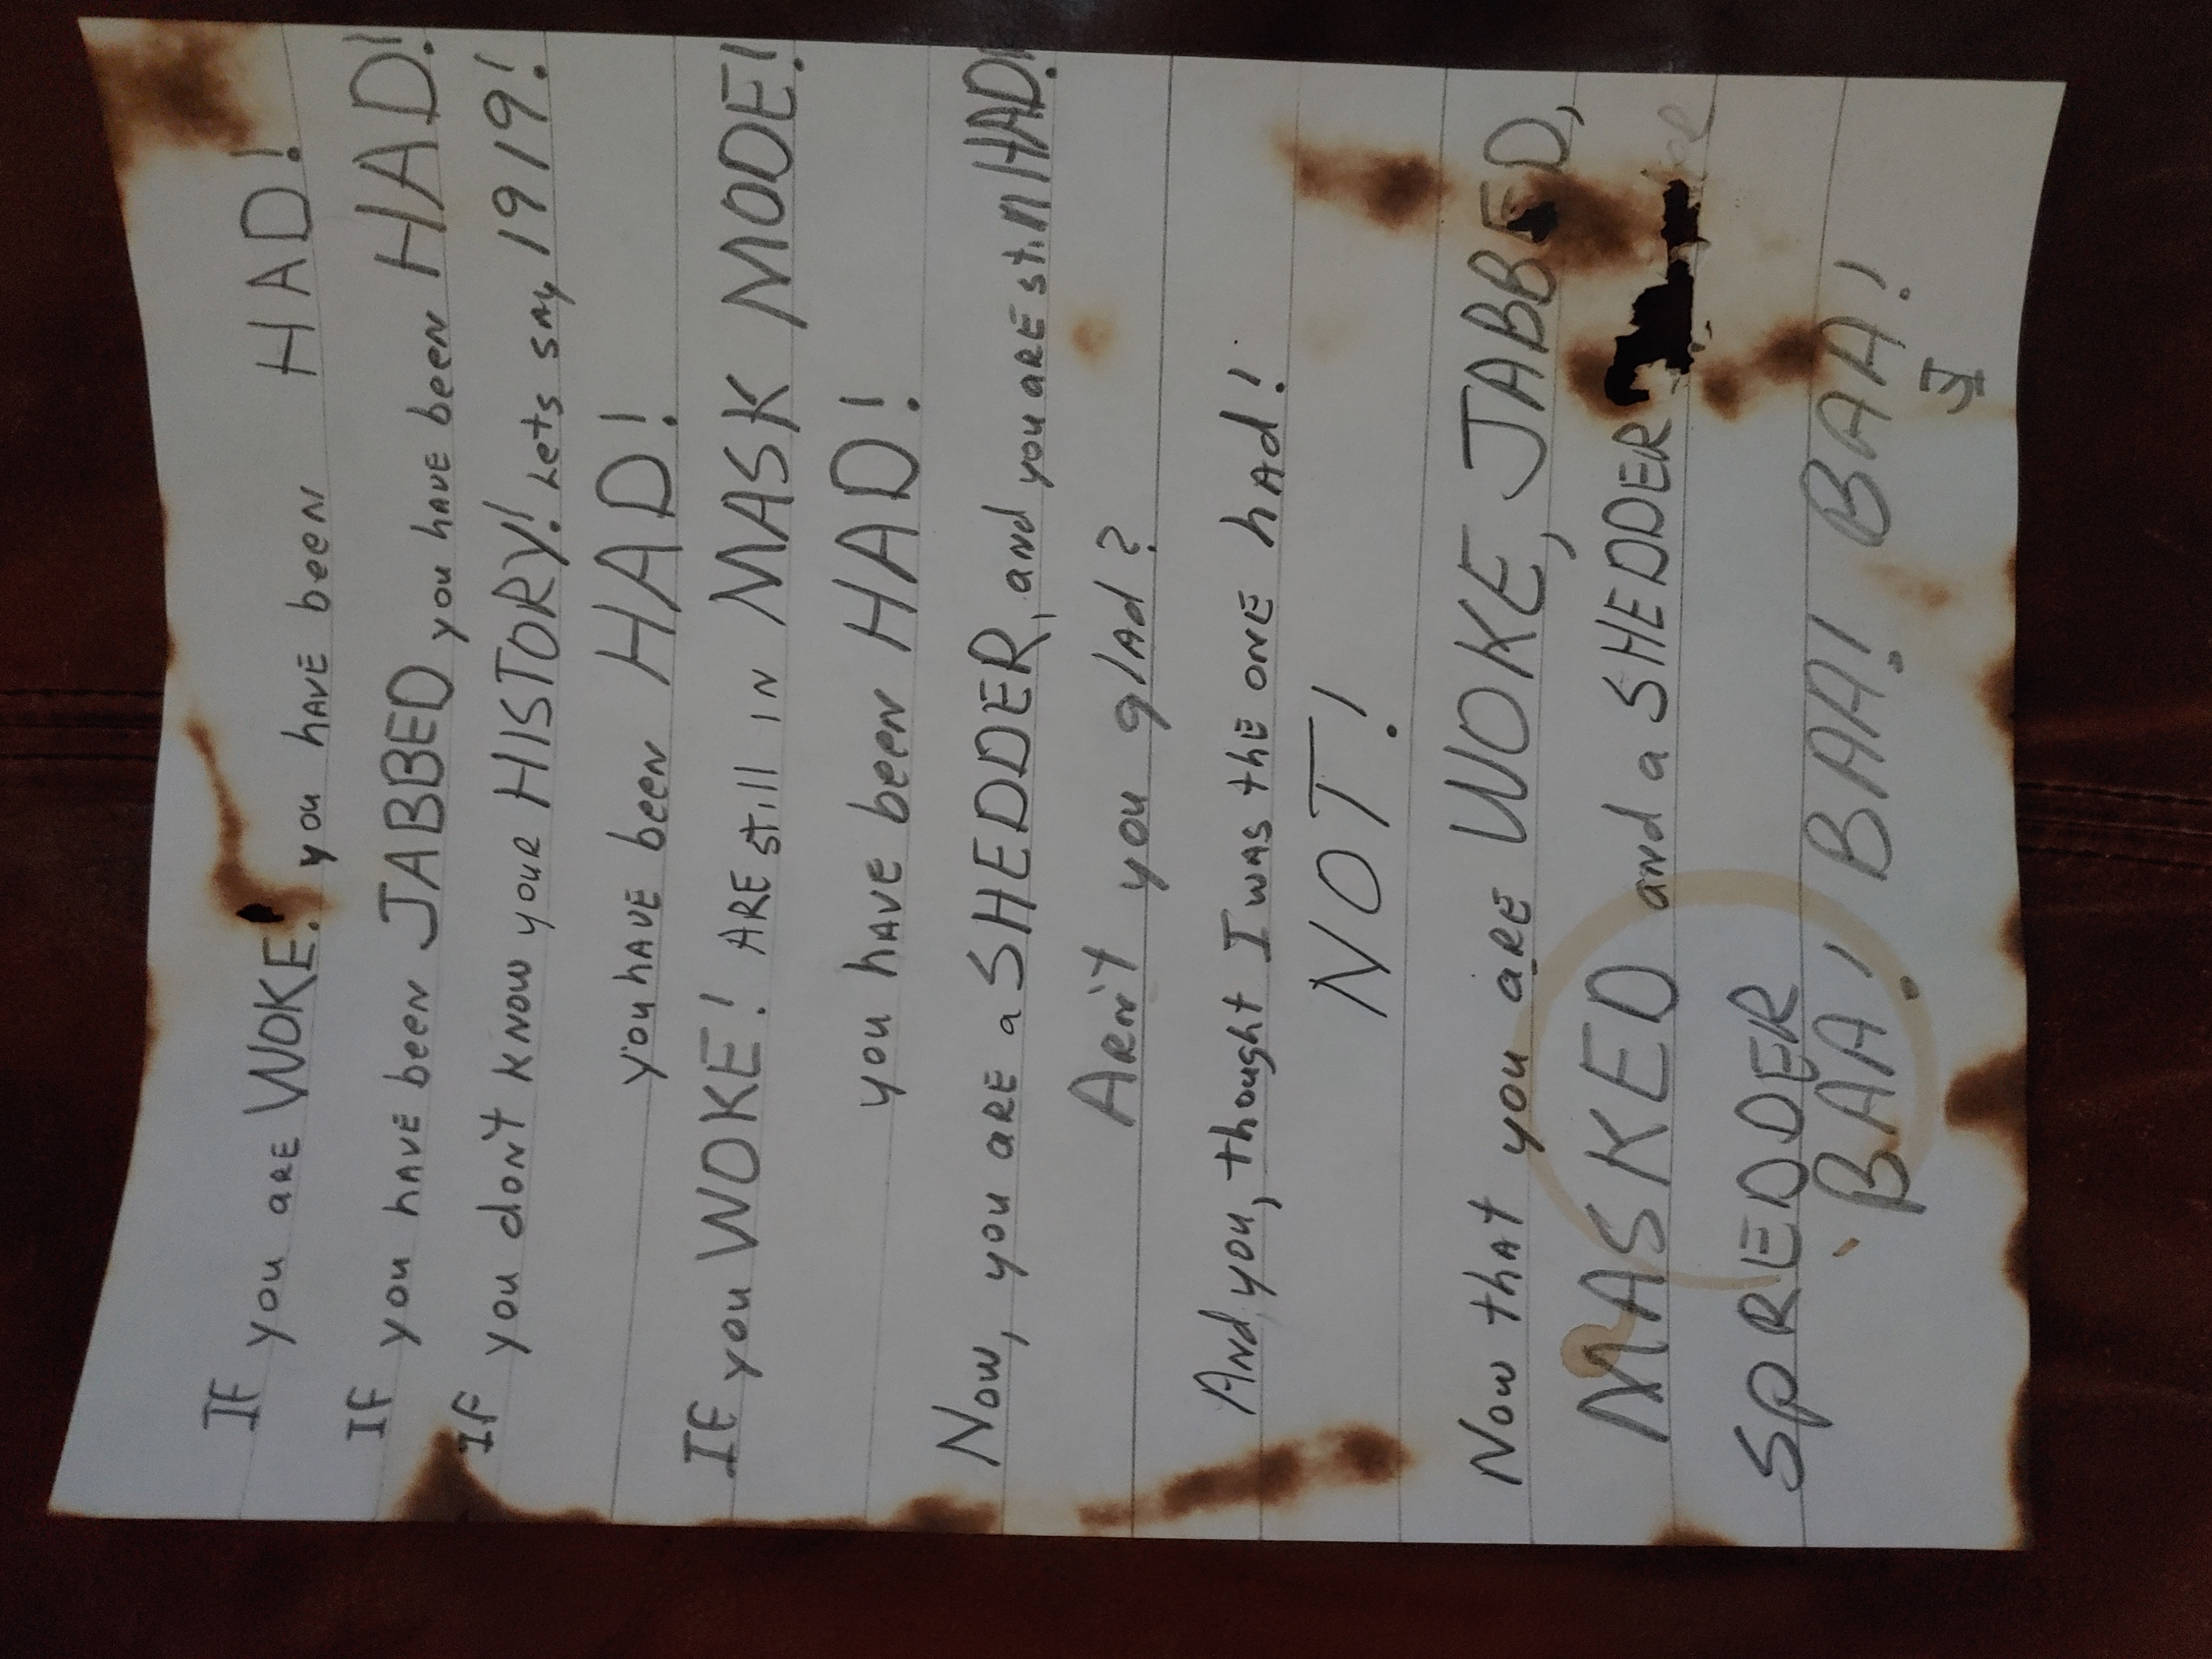 IF you are WOKE! you have been HAD!
IF you have been JABBED you have been HAD!
IF you don't know your HISTORY! Lets say 1919!
you have been HAD!
IF you WOKE! ARE still in MASK MODE!
you have been HAD!
Now, you are a SHEDDER, and you are still HAD!
Arn't you glad?
And, you, thought I was the one had!
NOT!
Now that you are WOKE, JABBED,
MASKED and a SHEDDER
SPREDDER
BAA! BAA! BAA!